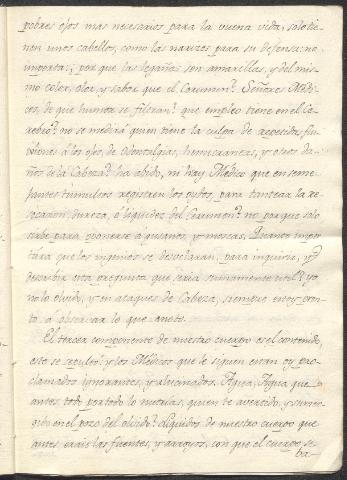 pobres ojos mas necesarios para la buena vida, solo tie-
nen unos cabellos, como las narizes para su defensa: no
importa; por que las legañas son amarillas, y del mis-
mo color, olor, y sabor que el Cerumen? Señores Medi-
cos, de que humor se filtran? que empleo tiene en el Ce-
rebro? no se medirá quien tiene la culpa de repetidas flu-
ciones à los ojos, de odontalgias, hemicraneas, y otros da-
ños de la Cabeza? ha abido, ni hay Medico que en seme-
jantes tumultos registren los oydos, para tantear la re-
secacion, dureza, ò liquidez del Cerumen? no, por que solo
sirbe para oponerse à gusanos, y moscas, Quanto impor-
tara que los ingenios se desvelaran, para inquirir, y
describir esta pregunta que seria sumamente util? yo
no lo olvido, y en ataques de Cabeza, siempre estoy pron-
to à observar lo que anoté.
El tercer componente de nuestro cuerpo es el contenido,
este se sepultò: y los Medicos que le siguen estan oy pro-
clamados ignorantes, y alucinados. Agua, Agua que
antes todo por todo lo nuevas, quien te avercido, y sumer-
gido en el pozo del olvido? Liquidos de nuestro cuerpo que
antes erais las fuentes, y arroyos, con que el cuerpo se
ba-